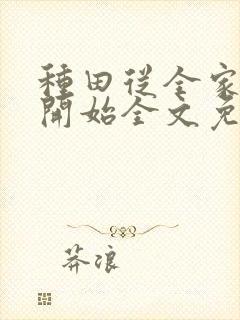 種田從全家
開始全文免
莽浪